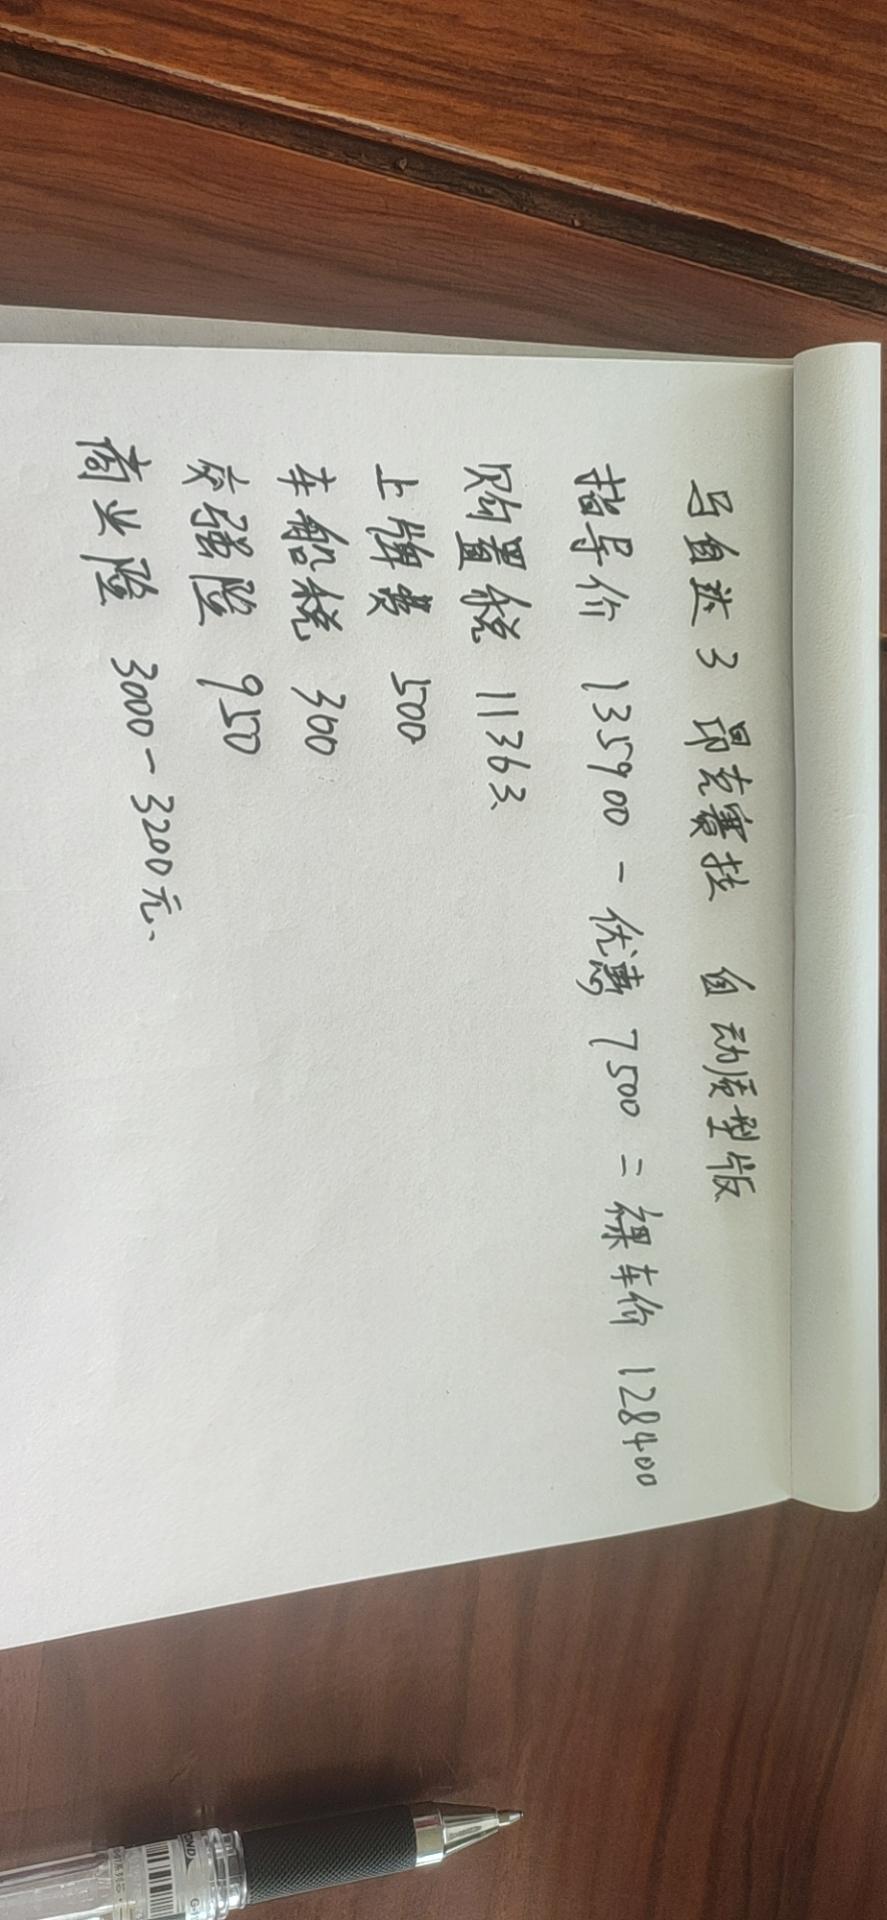 马自达3 昂克赛拉 自动质型版
指导价 135900 - 优惠 7500 = 裸车价 128400
购置税 11363
上牌费 500
车船税 300
交强险 950
商业险 3000-3200元、